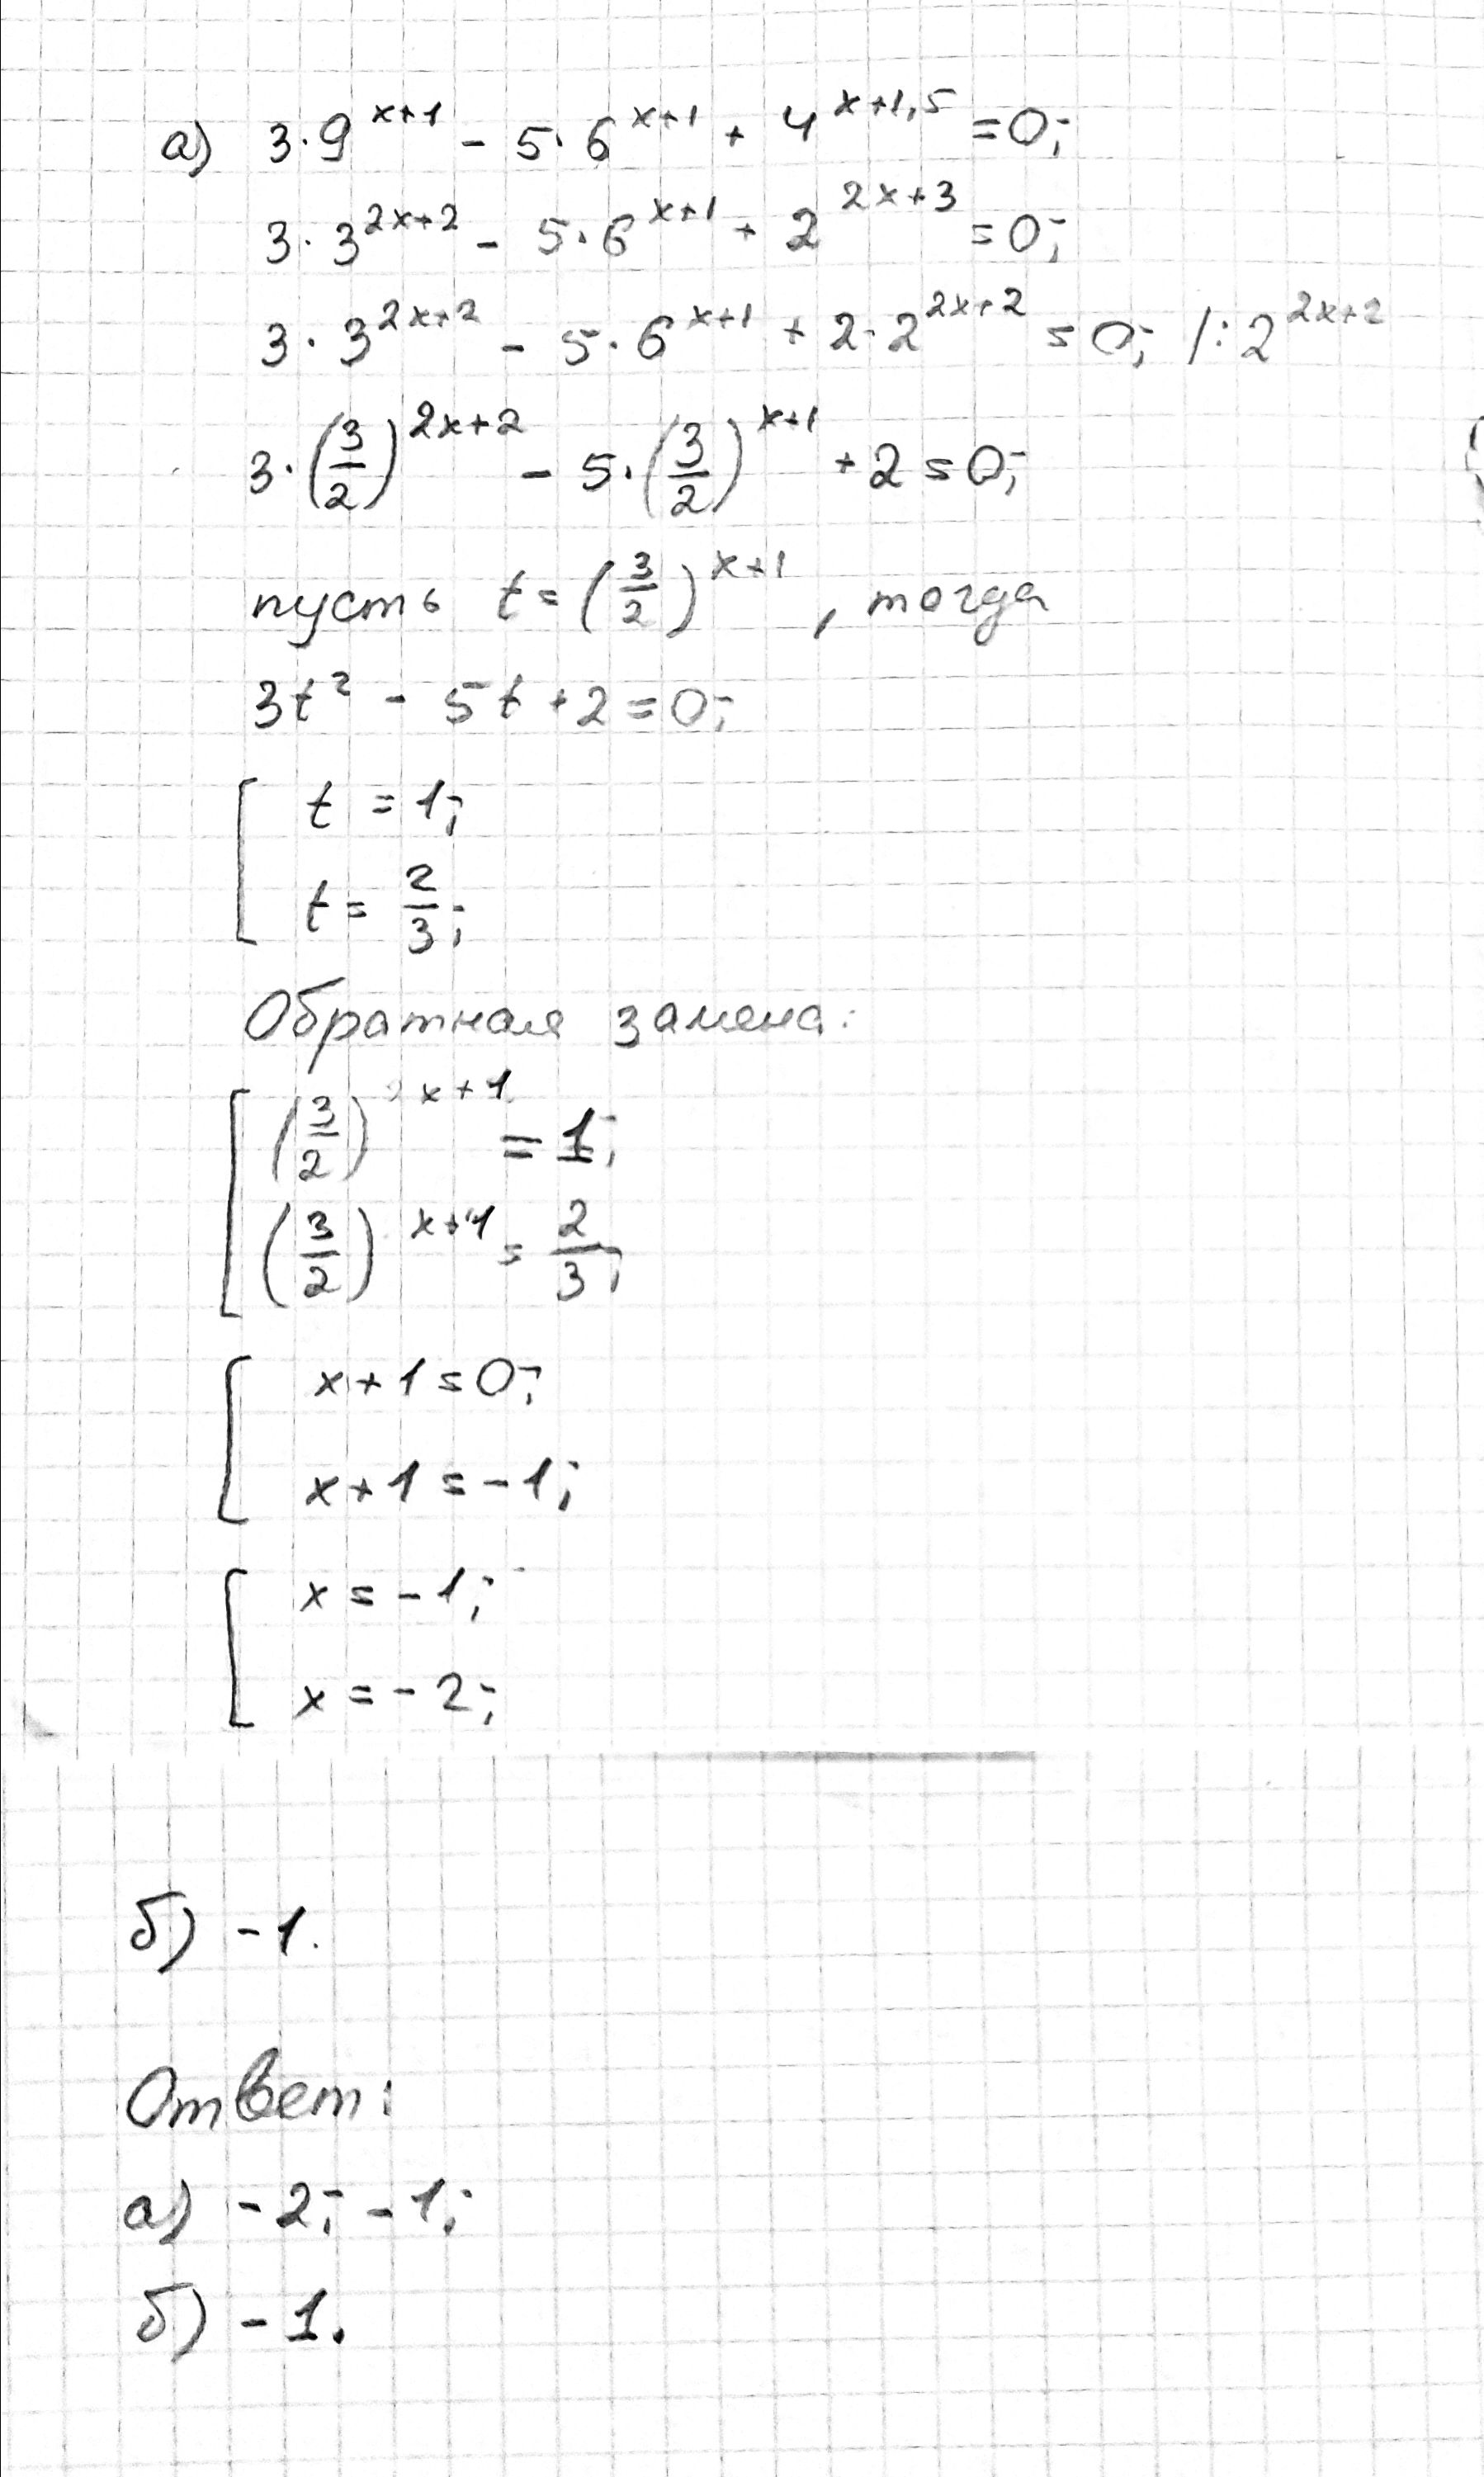 а) 3·9^{x+1} - 5·6^{x+1} + 4^{x+1,5} = 0;
3·3^{2x+2} - 5·6^{x+1} + 2^{2x+3} = 0;
3·3^{2x+2} - 5·6^{x+1} + 2·2^{2x+2} = 0; /:2^{2x+2}
3·(3/2)^{2x+2} - 5·(3/2)^{x+1} + 2 = 0;
пусть t = (3/2)^{x+1}, тогда
3t² - 5t + 2 = 0;
[ t = 1;
t = 2/3;
Обратная замена:
[ (3/2)^{x+1} = 1;
(3/2)^{x+1} = 2/3;
[ x+1 = 0;
x+1 = -1;
[ x = -1;
x = -2;
б) -1.
Ответ:
а) -2; -1;
б) -1.